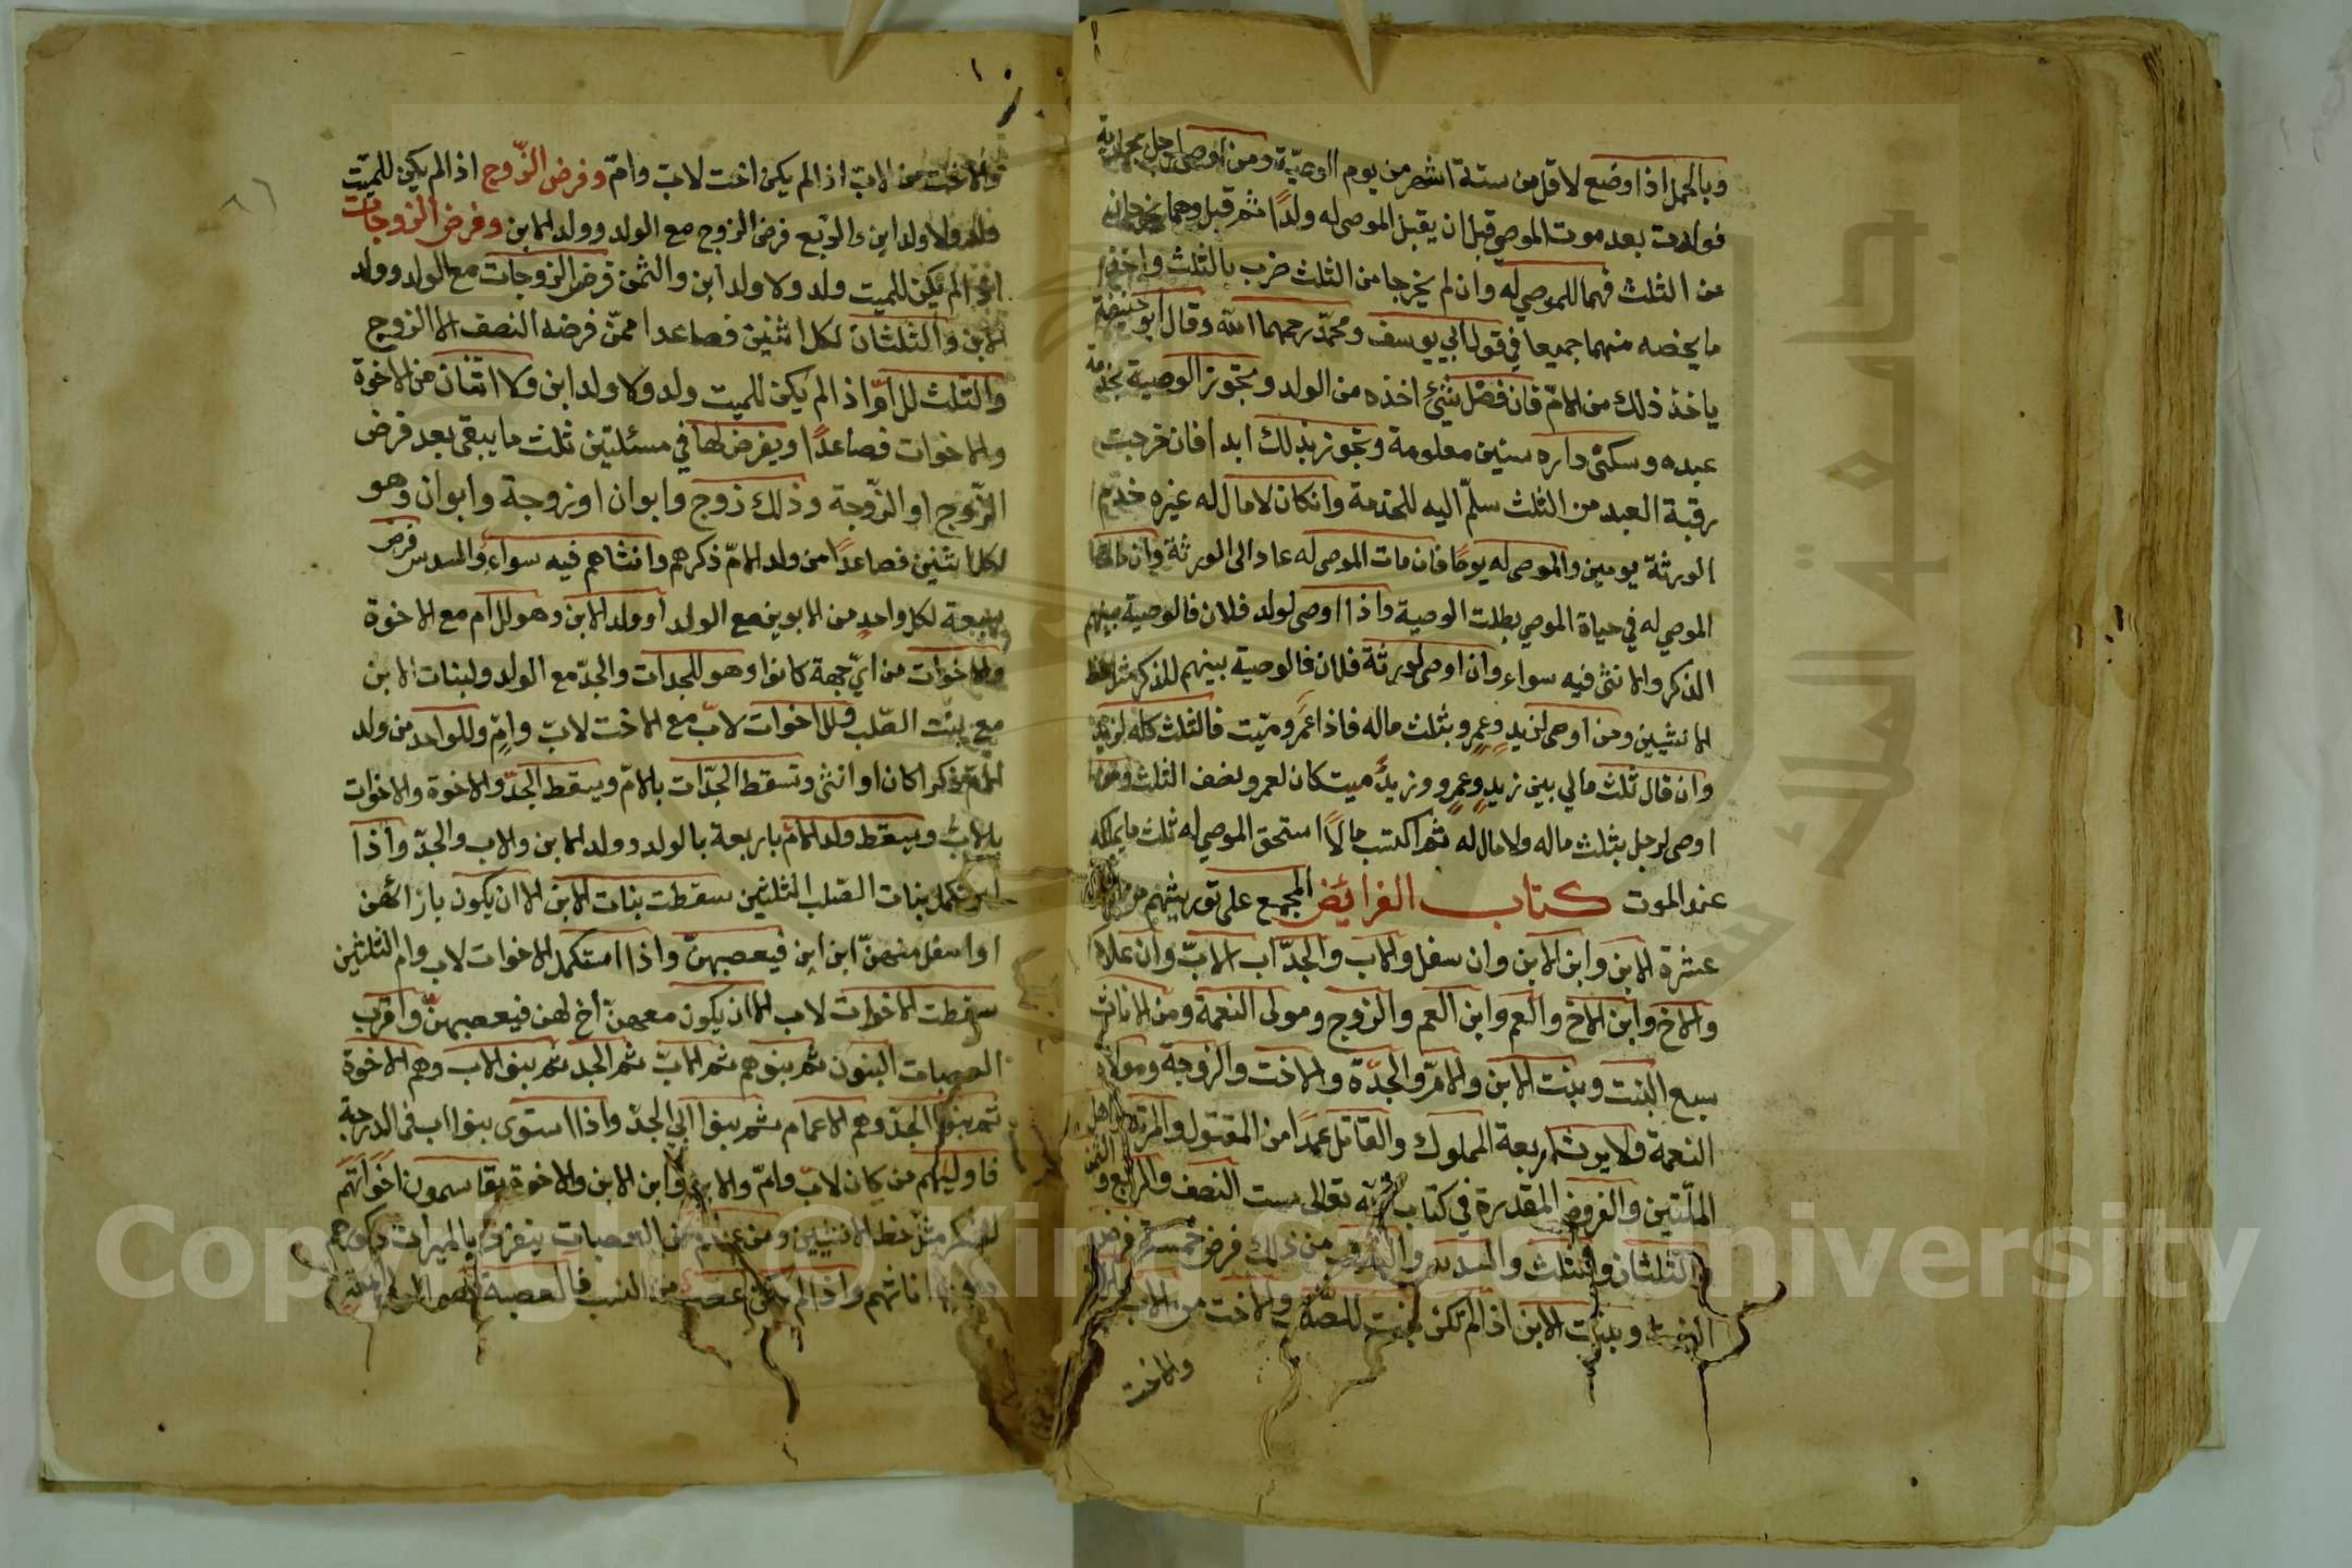 وبالحمل اذا وضع لاقل من ستة اشهر من يوم الوصيّة ومن اوصى لرجل بجارية
فولدت بعد موت الموصي قبل ان يقبل الموصى له ولدًا ثم قبل وهما يخرجان
من الثلث فهما للموصى له وان لم يخرجا من الثلث ضرب بالثلث واخذ
ما يخصه منهما جميعا في قول ابي يوسف ومحمّد رحمهما الله وقال ابو حنيفة
ياخذ ذلك من الامّ فان فضل شئ اخذه من الولد وتجوز الوصية بخدمة
عبده وسكنى داره سنين معلومة وتجوز بذلك ابدا فان خرجت
رقبة العبد من الثلث سلّم اليه للخدمة وانكان لا مال له غيره خدم
الورثة يومين والموصى له يومًا فان مات الموصى له عاد الى الورثة وان مات
الموصى له في حياة الموصي بطلت الوصية واذا اوصى لولد فلان فالوصية بينهم
الذكر والانثى فيه سواء وان اوصى لورثة فلان فالوصية بينهم للذكر مثل حظ
الانثيين ومن اوصى لزيد وعمرو بثلث ماله فاذا عمرو ميّت فالثلث كله لزيد
وان قال ثلث مالي بين زيد وعمرو وزيد ميت كان لعمرو نصف الثلث ومن
اوصى لرجل بثلث ماله ولا مال له ثم اكتسب مالًا استحق الموصى له ثلث ما يملكه
عند الموت كتاب الفرائض المجمع على توريثهم من
عشرة الابن وابن الابن وان سفل والاب والجدّ اب الابّ وان علا
والاخ وابن الاخ والعم وابن العم والزوج ومولى النعمة ومن الاناث
سبع البنت وبنت الابن والامّ والجدّة والاخت والزوجة ومولاة
النعمة ولا يرث اربعة المملوك والقاتل عمدًا من المقتول والمرتد واهل
الملّتين والفروض المقدرة في كتاب الله تعالى ست النصف والربع والثمن
والثلثان والثلث والسدس من ذلك فرض خمسة فرض
البنت وبنت الابن اذا لم تكن بنت للصّلب والاخت من الاب
والاخت
والاخت من الابّ اذا لم يكن اخت لاب وامّ وفرض الزّوج اذا لم يكن للميّت
ولد ولا ولد ابن والربع فرض الزوج مع الولد وولد الابن وفرض الزوجات
اذا لم يكن للميت ولد ولا ولد ابن والثمن فرض الزوجات مع الولد وولد
الابن والثلثان لكل اثنين فصاعدا ممّن فرضه النصف الا الزوج
والثلث للامّ اذا لم يكن للميت ولد ولا ولد ابن ولا اثنان من الاخوة
والاخوات فصاعدًا ويفرض لها في مسئلتين ثلث ما يبقى بعد فرض
الزّوج او الزّوجة وذلك زوج وابوان او زوجة وابوان وهو
لكل اثنين فصاعدًا من ولد الامّ ذكرهم وانثاهم فيه سواء والسدس فرض
سبعة لكل واحد من الابوين مع الولد او ولد الابن وهو للام مع الاخوة
والاخوات من ايّ جهة كانوا وهو للجدات والجدّ مع الولد ولبنات الابن
مع بنت الصّلب وللاخوات لابّ مع الاخت لابّ وامّ وللواحد من ولد
الامّ ذكرا كان او انثى وتسقط الجدّات بالامّ ويسقط الجدّ والاخوة والاخوات
بالاب ويسقط ولد الامّ باربعة بالولد وولد الابن والاب والجدّ واذا
استكمل بنات الصّلب الثلثين سقطت بنات الابن الا ان يكون بازائهن
او اسفل منهنّ ابن ابن فيعصبهنّ واذا استكمل الاخوات لاب وام الثلثين
سقطت الاخوات لاب الا ان يكون معهنّ اخ لهن فيعصبهنّ واقرب
العصبات البنون ثم بنوهم ثم الابّ ثم الجد ثم بنو الاب وهم الاخوة
ثم بنوا الجدّ وهم الاعمام ثم بنوا ابي الجدّ واذا استوى بنوا اب في الدرجة
فاوليهم من كان لابّ وامّ والابن وابن الابن والاخوة يقاسمون اخواتهم
للذكر مثل حظ الانثيين ومن عداهم من العصبات ينفرد بالميراث ذكورهم
دون اناثهم واذا لم يكن عصبة من النسب فالعصبة هو المولى المعتق
Copyright © King Saud University